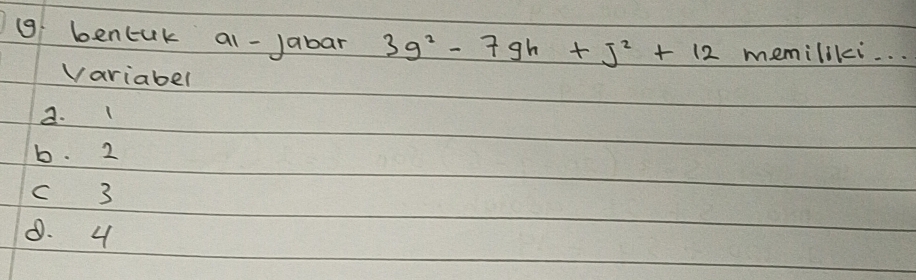 19. bentuk al-jabar 3g² - 7gh + j² + 12 memiliki...
variabel
a. 1
b. 2
c 3
d. 4